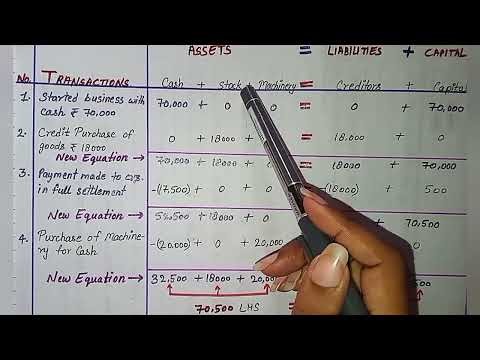 ASSETS = LIABILITIES + CAPITAL
No. TRANSACTIONS Cash + Stock + Machinery = Creditors + Capital
1. Started business with cash ₹ 70,000 70,000 + 0 0 = 0 + 70,000
2. Credit Purchase of goods ₹ 18000 0 + 18000 + = 18,000 + 0
New Equation → 70,000 + 18000 + 0 = 18000 + 70,000
3. Payment made to in full settlement -(17,500) + 0 + 0 -(18000) + 500
New Equation → 52,500 + 18000 + 0 + 70,500
4. Purchase of Machinery for Cash -(20,000) + 0 + 20,000
New Equation → 32,500 + 18000 + 20,00 = 500
70,500 LHS